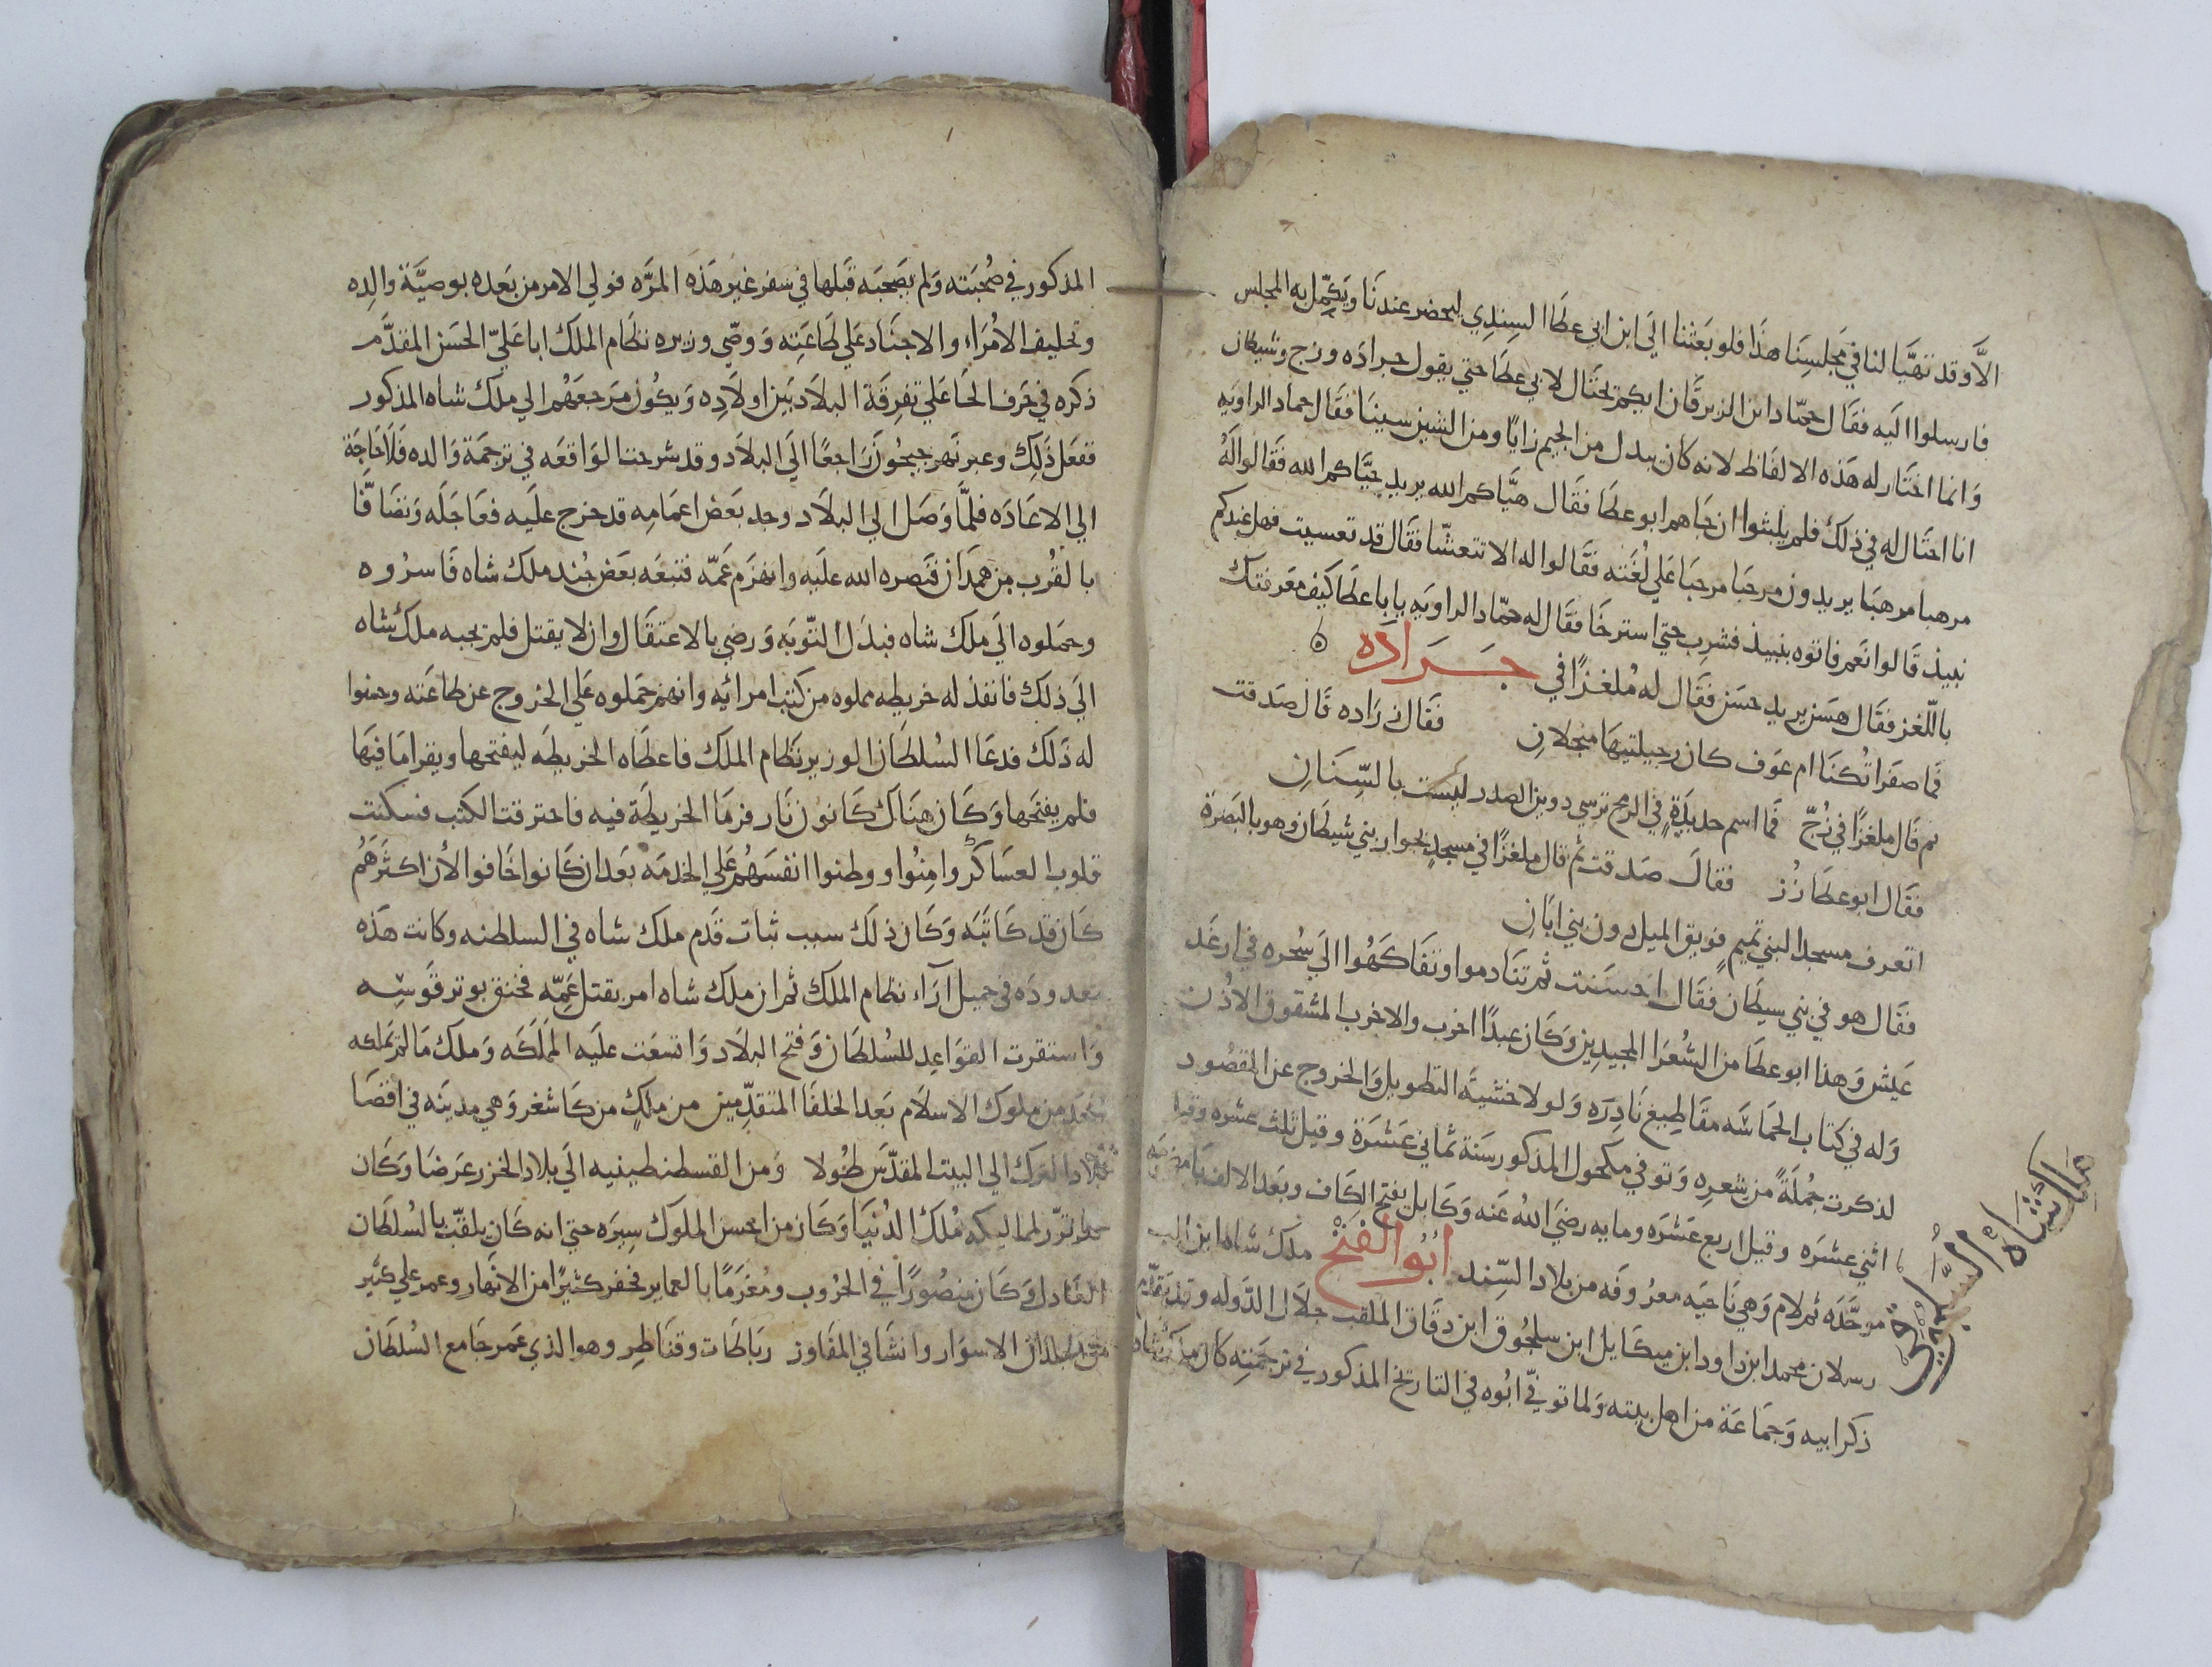 الاّ وقد تهيَّا لنا في مجلسِنَا هذَا فلو بعَثنا الَي ابن ابي عطَا السِندِي ليحضر عندنَا ويَكمِّل به المجلس
فارسلوا اليَه فقَال حمّاد ابن الزبرقَان ايكم يحتَال لابي عطَا حتي يقول جرادَه وزج وشيطان
وَانما اختَار له هَذه الالفَاظ لانه كان يبدل من الجيم زايًا ومن الشين سينَا فقَال حماد الراويَه
انا احتَال له في ذلك فلم يلبثوا ان جَاهم ابو عطَا فقَال هيَّاكم الله يريد حيَّاكم الله فقَالوا لَهُ
مرهبا مرهبَا يريدون مرحبا مرحبَا علي لُغَته فقَالوا له الا تتعشّا فقَال قد تعسيت فهل عندكم
نبيذ قَالوا نَعم فاتوه بنبيذ فشرِب حتي استرخَا فقَال له حمّاد الراويَه يا ابا عطَا كيف معَرفتك
باللّغز فقَال هسَن يريد حسَن فقَال له مُلغزًا في جَرَاده ۵
فمَا صفَرا تُكنَا ام عَوف كان رجيلتيهَا منجلانِ فقَال زَرَاده قَال صَدقت
ثم قَال ملغزًا في زُجّ فمَا اسم حديدَةٍ في الرمح ترسي دوين الصدر ليست بالسِّنَانِ
فقَال ابو عطَا زُز فقالَ صَدقت ثم قال ملغزًا في مسجدٍ بجوار بني شيطَان وهو بالبَصَرة
اتعرف مسجدا لبني تميمٍ فويق الميل دون بني ابَانِ
فقَال هو في بني سيطَان فقَال احسَنت ثم تنَادموا وتفَاكَهُوا الَي سُحره في ارغَد
عَيش وَهذا ابو عطَا من الشُعَرا المجيدِين وَكَان عبدًا اخرب والاخرب المشقوق الاُذن
وَله في كتاب الحمَاسَه مقَاطِيع نَادِرَه وَلولا خشيَة التطويل وَالخروج عن المقصُود
لذكرت جُملَةً من شعرِه وَتوفي مكحول المذكور سَنة ثمَاني عَشَرَة وقيل ثلث عشره وقيل
اثني عشَره وقيل اربع عَشَره ومايه رضَي اللهُ عَنه وَكَابل بفتح الكَاف وبعَد الالف بَا
موحَّدَه ثم لام وَهي نَاحيَه معرُوفَه من بلاد السِّند ابُو الفَتْح ملك شاه ابن الب
رسلان محمد ابن داود ابن ميكَايل ابن سلجُوق ابن دقَاق الملقب جلاَل الدّوله وقد تقدّم
ذكر ابيه وَجمَاعَة من اهل بيته وَلما توفي ابُوه في التاريخ المذكور في ترجمَتِه كان ملكشاه
ملكشَاه السَّلجُوقي
المذكور في صُحبَته وَلم يصَحبَه قَبلها في سفر غير هَذه المرَّه فولي الامر من بَعده بوصيَّة والِده
وتحليف الاُمرَاءِ والاجنَاد عَلي طَاعَتِه وَوصّي وزيره نظَام الملك ابا عَليّ الحسَن المقدَّم
ذكره في حَرف الحَا علي تفرِقَة البلاَد بَين اولاَدِه وَيكُون مَرجعَهُم الي ملك شاه المذكور
ففعَل ذَلِك وعبر نَهر جيحُون رَاجعًا الَي البلاَد وقد شرحنا الوَاقعَه في ترجمَة وَالده فَلاَ حَاجَة
الي الاعَادَه فلمَّا وَصَل الي البلاَد وجد بَعَض اعمَامِه قد خرج علَيه فعَاجَلَه وَتصَافّا
بالقُرب من همَدَان فنَصره الله علَيه وانهزَم عَمّه فتبعَه بعَض جُند ملَك شاه فَاسرُوه
وحمَلوه الَي مَلك شاه فبذَل التّوبَه وَرضي بالاعتقَال وان لا يقتل فلم يجبه ملك شاه
الَي ذلك فانفذ له خريطِه مملوه من كتب امرائِه وانهم حمَلوه عَلي الخرُوج عن طاعَته وحسّنوا
له ذَلَك فدعَا السُلطَان الوزير نَظام الملك فاعطَاه الخريطِه ليفتحها ويقرا مَا فيَها
فلم يفتحَها وَكَان هنَاك كَانون نَار فرمَا الخريطَة فيه فاحترقت الكتب فسكنت
قلوب العسَاكَر وامِنُوا ووطنوا انفسَهُم عَلي الخدمَه بعَد ان كَانوا خَافوا لاَن اكثَرَهُم
كَان قد كَاتبَه وَكَان ذلَك سبب ثبات قَدم ملك شاه في السلطنه وكانت هَذه
معدودَه في جميل آرَاء نظام الملك ثم ان ملك شاه امر بقتل عَمِّه فخنق بوتر قَوسِه
وَاستقرت القوَاعِد للسُلطَان وَفتح البلاَد وَاتسعَت علَيه المملَكَه وَملَك مَا لم يَملكه
احَد من ملوك الاسلاَم بَعَد الخلفَا المتقدِّمين من ملكٍ من كَاشغر وَهي مدينَه في اقصَا
بلاد الترك الي البيت المقدّس طُولا وَمن القسطنطينيه الَي بلاد الخزر عرَضَا وَكَان
لمماليكه مُلك الدُنيَا وَكَان من احسن الملوك سِيرَه حتي انه كَان يلقّب بالسُلطَان
العَادل وَكَان منصُورًا في الحُروب ومُغرَمًا بالعماير فحفر كثيرًا من الانهَارِ وعمر علي كثير
من البلدان الاسوَار وانشَا في المفَاوز رباطَات وقنَاطِر وهو الذي عَمر جَامع السُلطَان